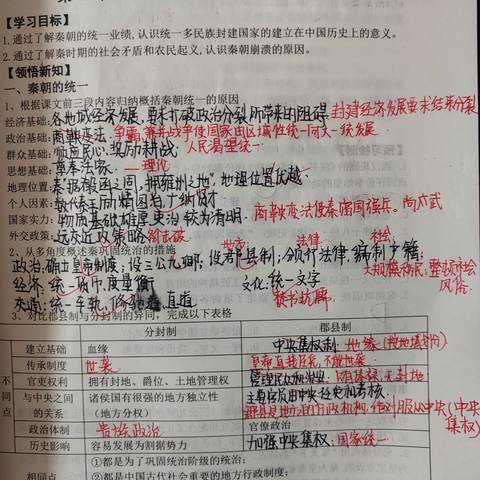 【学习目标】
1.通过了解秦朝的统一业绩,认识统一多民族封建国家的建立在中国历史上的意义。
2.通过了解秦时期的社会矛盾和农民起义,认识秦朝崩溃的原因。
【领悟新知】
一、秦朝的统一
1、根据课文前三段内容归纳概括秦朝统一的原因
经济基础:各地域经济发展,要求打破政治分裂所带来的阻碍 封建经济发展要求结束分裂
政治基础:商鞅变法,争霸、兼并战争使国家由区域性统一向大一统发展
群众基础:顺应民心,奖励耕战 人民渴望统一
思想基础:尊奉法家 理论
地理位置:秦据殽函之固,拥雍州之地,地理位置优越
个人因素:数代奉励精图治,广纳贤才
国家实力:物质基础雄厚,吏治较为清明 商鞅变法使秦国富兵强。尚武
外交政策:远交近攻策略 各个击破
2、从多角度概述秦巩固统治的措施 地方 法律 社会
政治:确立皇帝制度;设三公九卿;设郡县制;颁行法律,编制户籍;
大规模移民;整顿社会风俗
经济:统一货币、度量衡 文化:统一文字
焚书坑儒
交通:统一车轨,修驰道、直道
3、对比郡县制与分封制的异同,完成以下表格
分封制 郡县制
不同点
建立基础 血缘 中央集权制 地缘(按地域划分)
传承制度 世袭 皇帝直接任免,不能世袭
官吏权利 拥有封地、爵位、土地管理权 管理民众和收税 只有俸禄,无封地
与中央之间的关系 诸侯国有很强的地方独立性(地方分权) 主要官员由中央任免和考核
郡县是地方的行政机构,绝对服从中央(中央集权)
政治体制 贵族政治 官僚政治
历史影响 容易发展为割据势力 加强中央集权;国家统一
相同点 ①都是为了巩固统治阶级的统治;
②都是中国古代社会重要的地方行政制度;